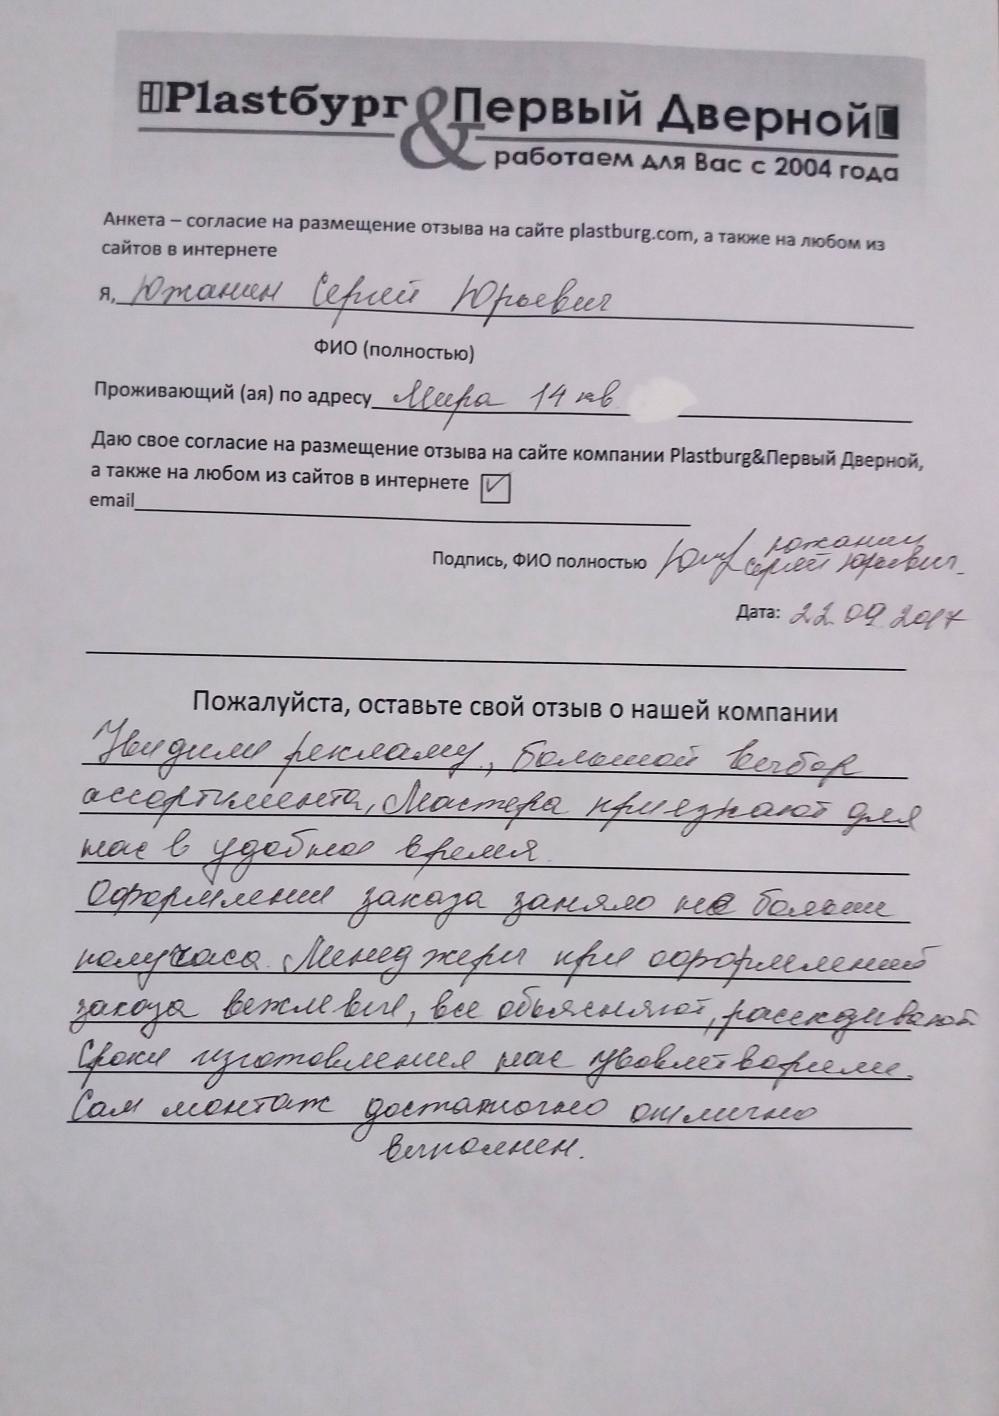 Plastбург & Первый Дверной
работаем для Вас с 2004 года
Анкета – согласие на размещение отзыва на сайте plastburg.com, а также на любом из
сайтов в интернете
я, Южанин Сергей Юрьевич
ФИО (полностью)
Проживающий (ая) по адресу Мира 14 кв.
Даю свое согласие на размещение отзыва на сайте компании Plastburg&Первый Дверной,
а также на любом из сайтов в интернете ✓
email
Подпись, ФИО полностью Южанин
Сергей Юрьевич.
Дата: 22.09.2017
Пожалуйста, оставьте свой отзыв о нашей компании
Увидили рекламу, большой выбор
ассортимента, Мастера приезжают для
нас в удобное время.
Оформление заказа заняло не больше
получаса. Менеджеры при оформлений
заказа вежливые, все объясняют, рассказывают
Сроки изготовления нас удовлетворили.
Сам монтаж достаточно отлично
выполнен.